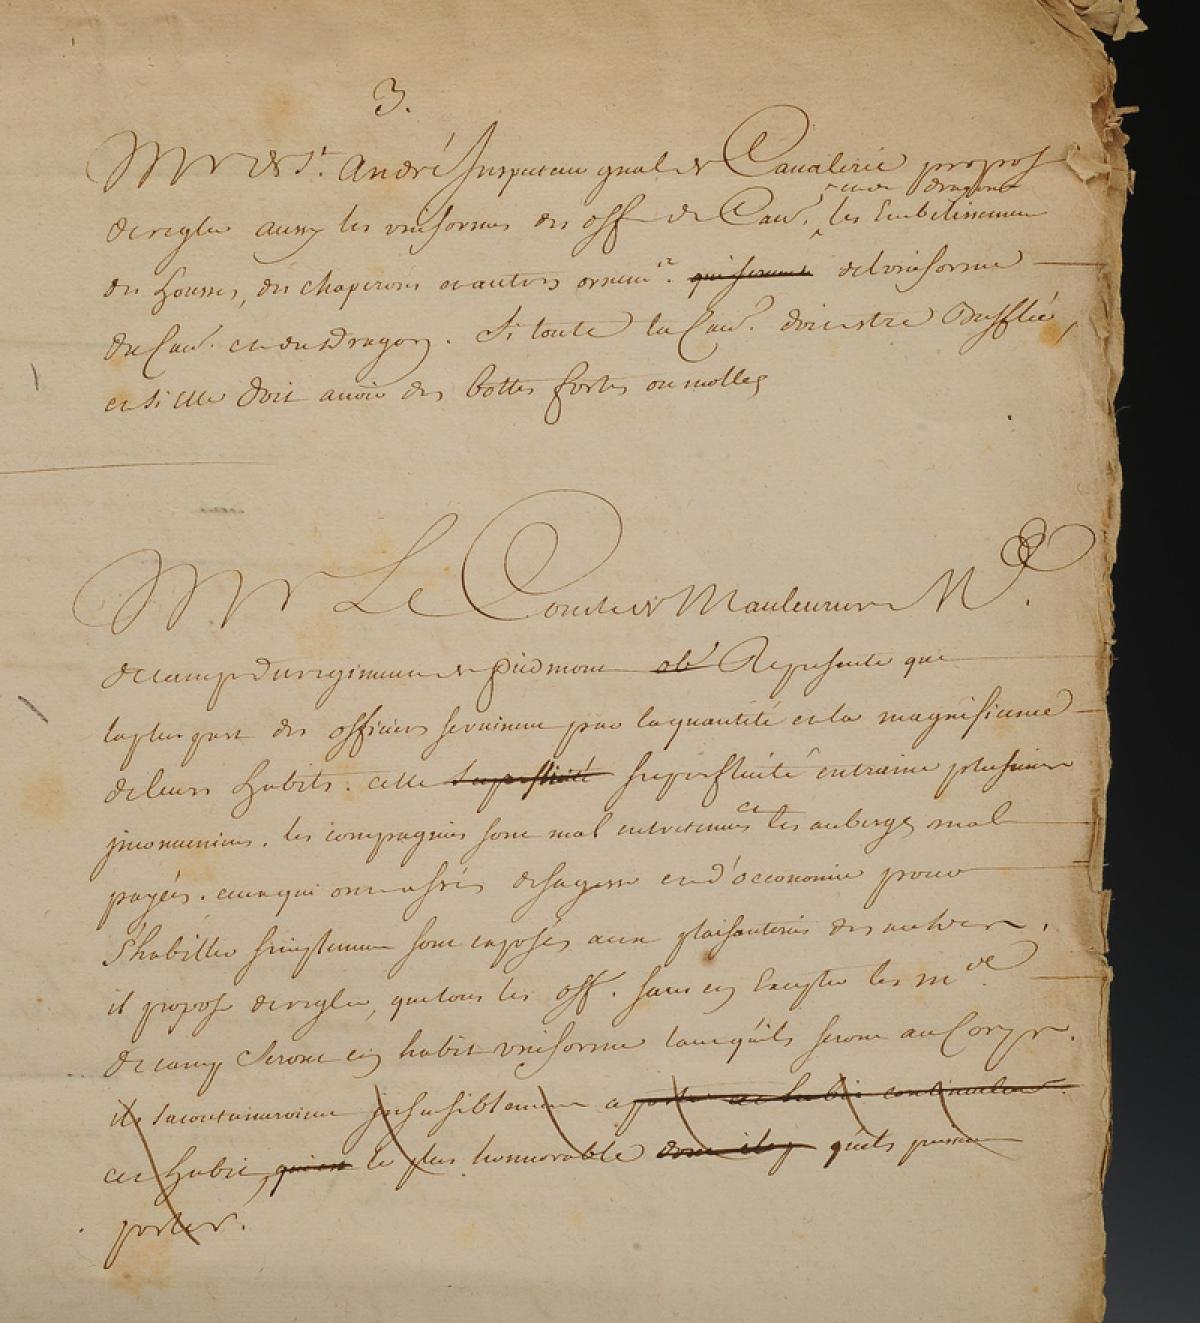 3.
Mr de St. André Inspecteur gnal de Cavalerie propose
de regler aussy les uniformes des off de Cav. et des dragons les Embelissemens
des housses, des chaperons et autres ornemts. qui seront de l'uniforme
de Cav. et des Dragons. Si toute la Cavie. doit estre Bufflée,
et si elle doit avoir des bottes fortes ou molles
Mr Le Comte de Maulevrier Md.
de camp du regiment de Piedmont obs Represente que
la plus part des officiers se ruinent par la quantité et la magnificence
de leurs habits. cette superfluité superfluité entraine plusieurs
inconveniens. les compagnies sont mal entretenues et les auberges mal
payées. ceux qui ont assés de sagesse et d'oeconomie pour
s'habiller simplement sont exposés aux plaisanteries des autres.
il propose de regler, que tous les off. sans en Excepter les mde.
de camp seront en habit uniforme tant qu'ils seront au Corps.
ils s'acoutumeroient insensiblement a porter cet habit continuelmt.
cet habit, qui est le plus honnorable dont ils qu'ils puissent
porter.